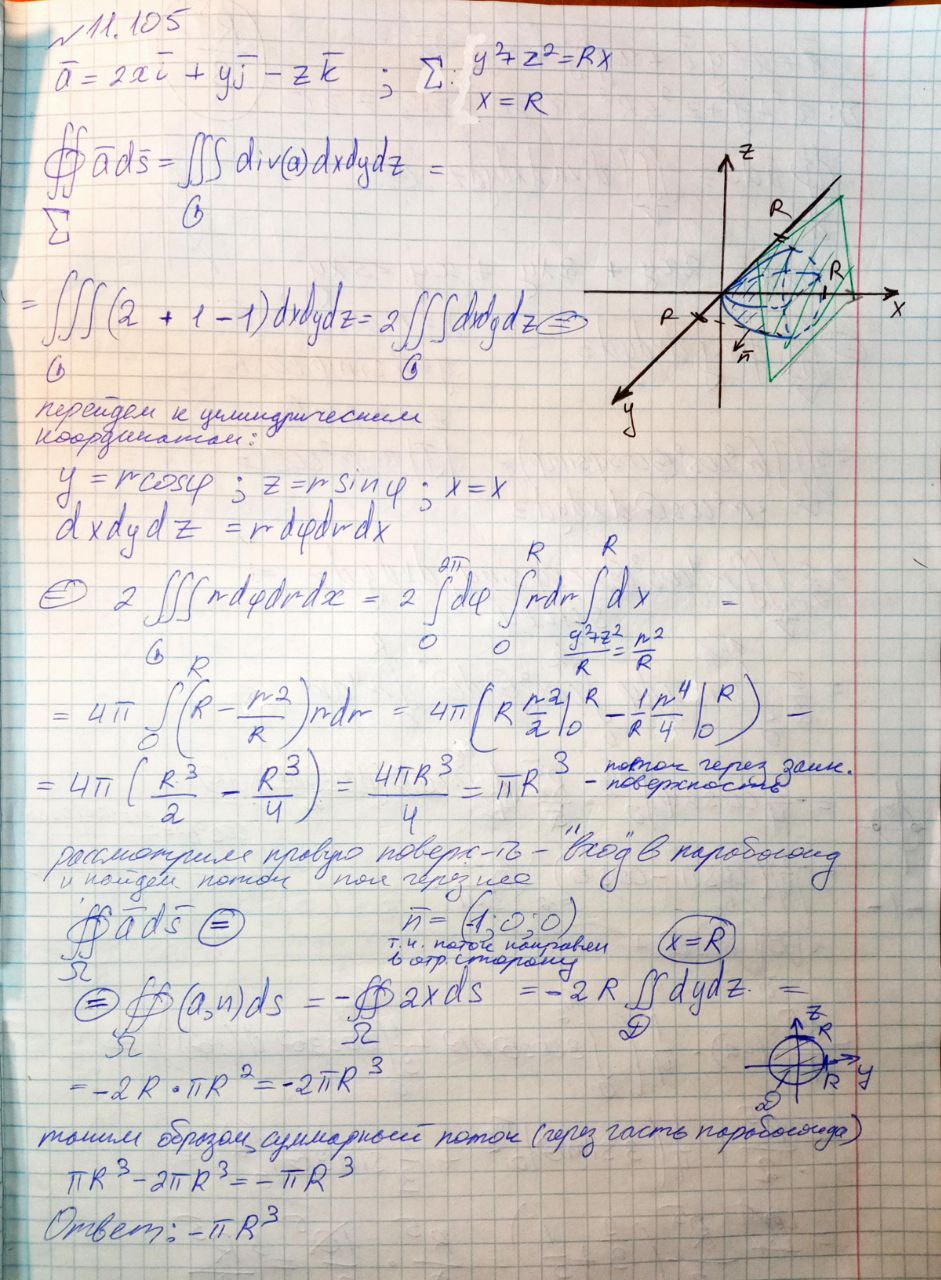 №11.105
ā = 2xī + yj̄ − zk̄ ; Σ: { y²+z²=Rx
x = R
∯ ā ds̄ = ∭ div(a) dxdydz =
Σ G
= ∭ (2 + 1 − 1) dxdydz = 2 ∭ dxdydz ⊜
G G
z
R
R
x
R
n̄
y
перейдем к цилиндрическим
координатам:
y = r cosφ ; z = r sinφ ; x = x
dxdydz = r dφdrdx
⊜ 2 ∭ r dφdrdx = 2 ∫₀^2π dφ ∫₀^R rdr ∫^R dx =
G y²+z²/R = r²/R
= 4π ∫₀^R (R − r²/R) rdr = 4π (R r²/2 |₀^R − 1/R r⁴/4 |₀^R) =
= 4π (R³/2 − R³/4) = 4πR³/4 = πR³ – поток через замк.
поверхность
рассмотрим правую поверх-ть – "вход" в параболоид
и найдем поток поля через нее
∯ ā ds̄ ⊜ n̄ = (-1; 0; 0) x = R
Ω т.к. поток направлен
в отр. сторону
⊜ ∯ (a,n)ds = −∯ 2xds = −2R ∬ dydz =
Ω Ω D
z
R
R
y
D
= −2R · πR² = −2πR³
таким образом, суммарный поток (через часть параболоида)
πR³ − 2πR³ = −πR³
Ответ: −πR³